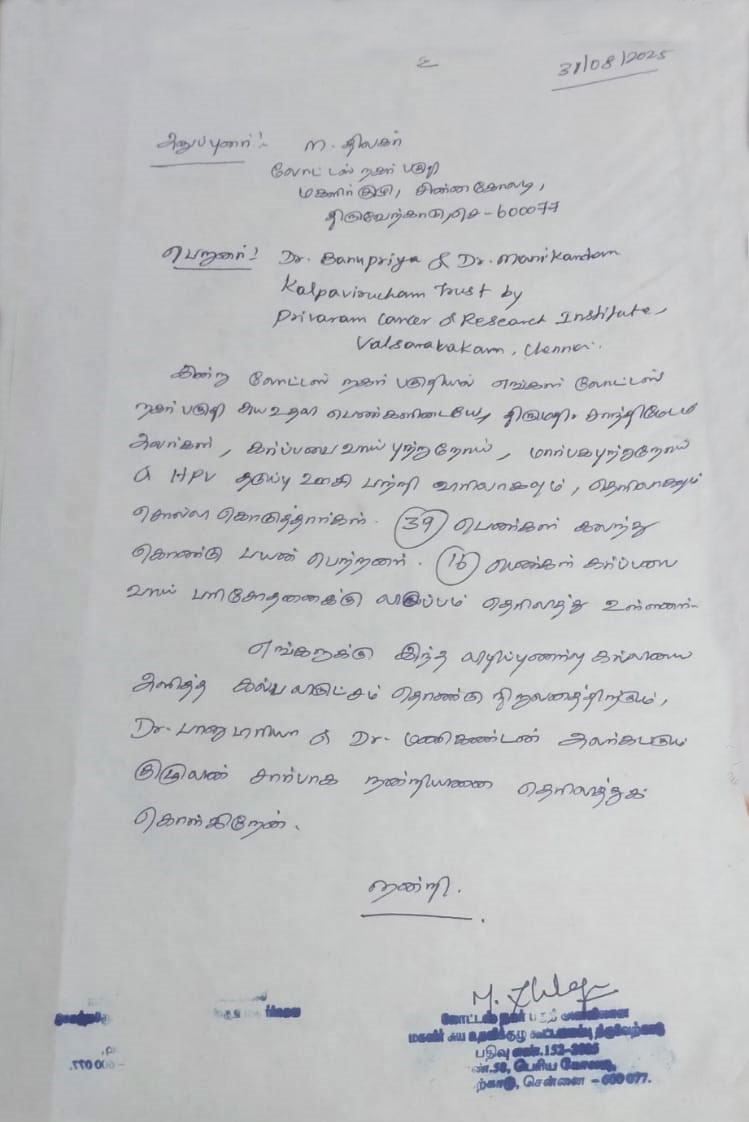 உ
31/08/2025
அனுப்புனர்:- M. திலகர்
லோட்டஸ் நகர் பகுதி
மகளிர் குழு, சின்ன கோலடி,
திருவேற்காடு, செ - 600077
பெறுனர்:- Dr. Banupriya & Dr. Manikandan
Kalpavirucham Trust by
Privaram Cancer & Research Institute,
Valsaravakam, Chennai.
இன்று லோட்டஸ் நகர் பகுதியில் எங்கள் லோட்டஸ்
நகர் பகுதி சுய உதவி பெண்களிடையே, திருமதி. சாந்திமேடம்
அவர்கள், கர்ப்பபை வாய் புற்றுநோய், மார்பகபுற்றுநோய்
& HPV தடுப்பு ஊசி பற்றி விரிவாகவும், தெளிவாகவும்
சொல்லி கொடுத்தார்கள். 39 பெண்கள் கலந்து
கொண்டு பயன் பெற்றனர். 16 பெண்கள் கர்ப்பபை
வாய் பரிசோதனைக்கு விருப்பம் தெரிவித்து உள்ளனர்.
எங்களுக்கு இந்த விழிப்புணர்வு கல்வியை
அளித்த கல்பவிருட்சம் தொண்டு நிறுவனத்திற்கும்,
Dr. பானுபிரியா & Dr. மணிகண்டன் அவர்களுக்கும்
குழுவின் சார்பாக நன்றியினை தெரிவித்துக்
கொள்கிறேன்.
நன்றி.
லோட்டஸ் நகர் பகுதி
மகளிர் சுய உதவிக்குழு கூட்டமைப்பு திருவேற்காடு
பதிவு எண்.152-2025
எண்.58, பெரிய கோலடி,
சென்னை - 600 077.